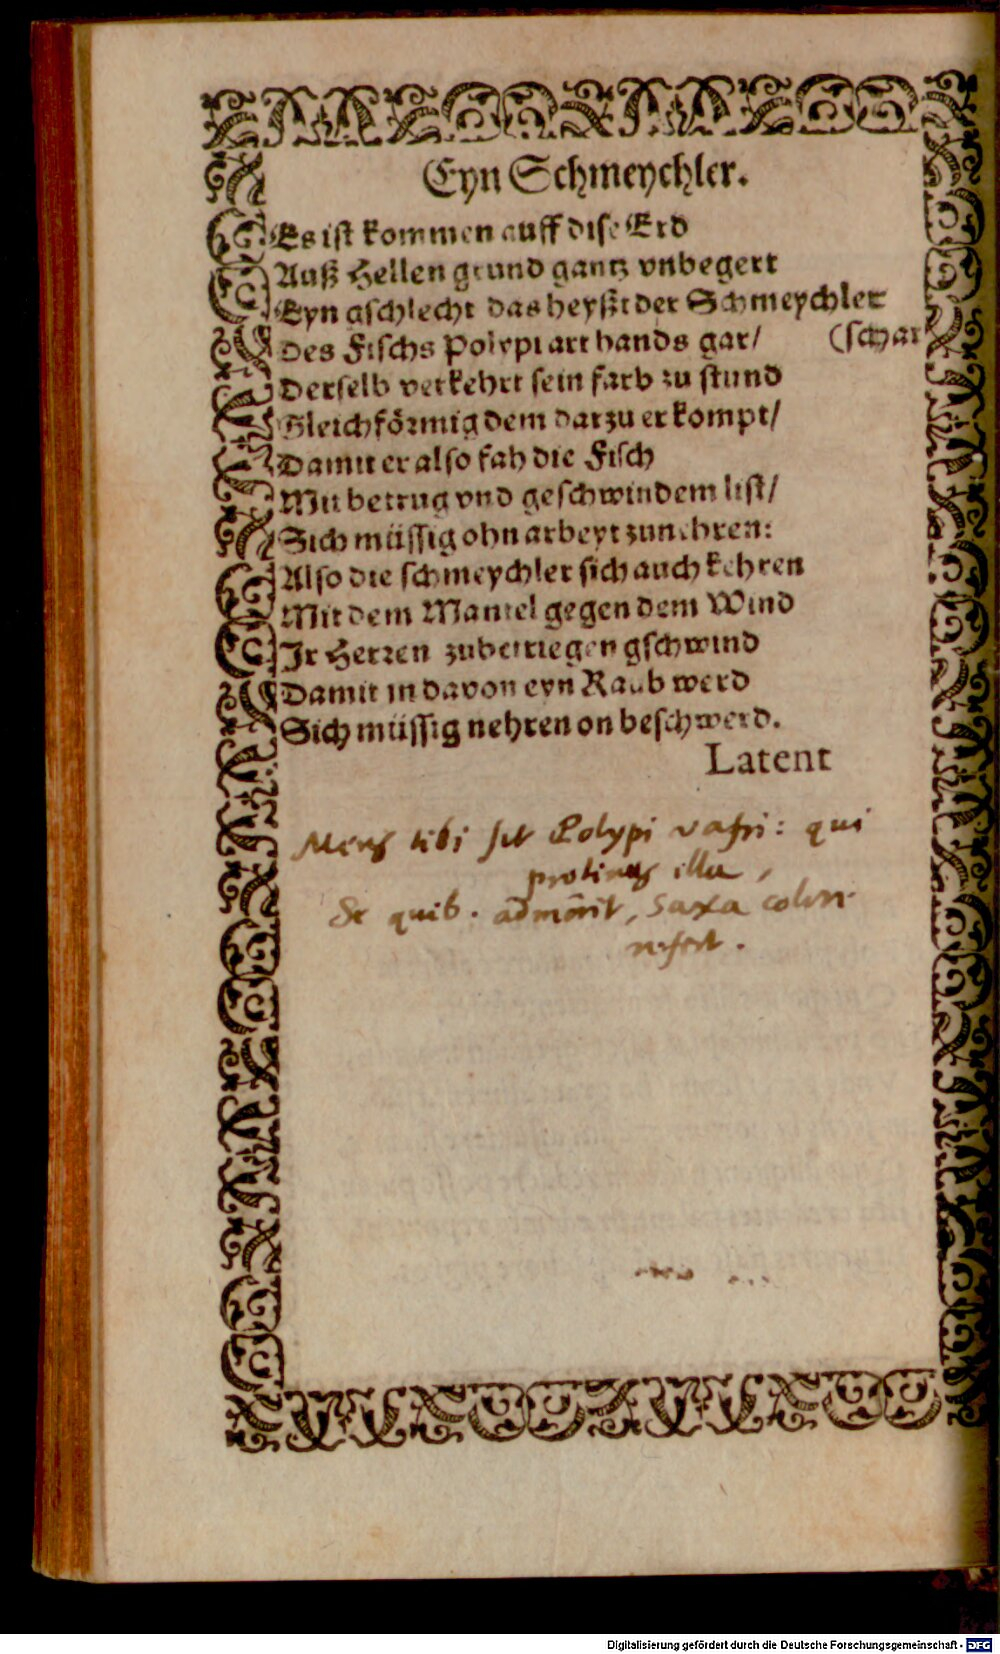 Eyn Schmeychler.
Es ist kommen auff dise Erd
Auß Hellen grund gantz vnbegert
Eyn gschlecht das heyßt der Schmeychler
(schar
Des Fischs Polypi art hands gar/
Derselb verkehrt sein farb zu stund
Gleichförmig dem darzu er kompt/
Damit er also fah die Fisch
Mit betrug vnd geschwindem list/
Sich müssig ohn arbeyt zunehren:
Also die schmeychler sich auch kehren
Mit dem Mantel gegen dem Wind
Ir Herren zubetriegen gschwind
Damit in davon eyn Raub werd
Sich müssig nehren on beschwerd.
Latent
Mens tibi sit Polypi vafri: qui
protinus illa,
Se quib. admorit, saxa colore
refert.
Digitalisierung gefördert durch die Deutsche Forschungsgemeinschaft - DFG